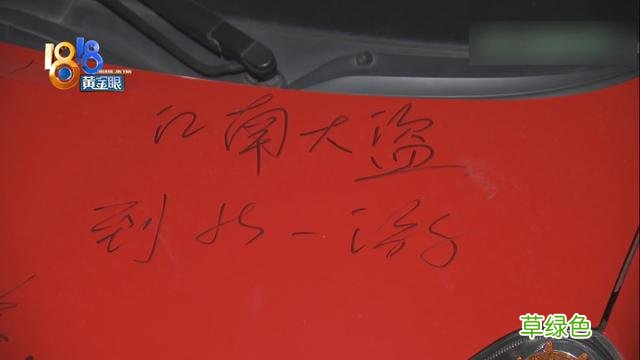 1818
黄金眼
江南大盗
到此一游
草绿色